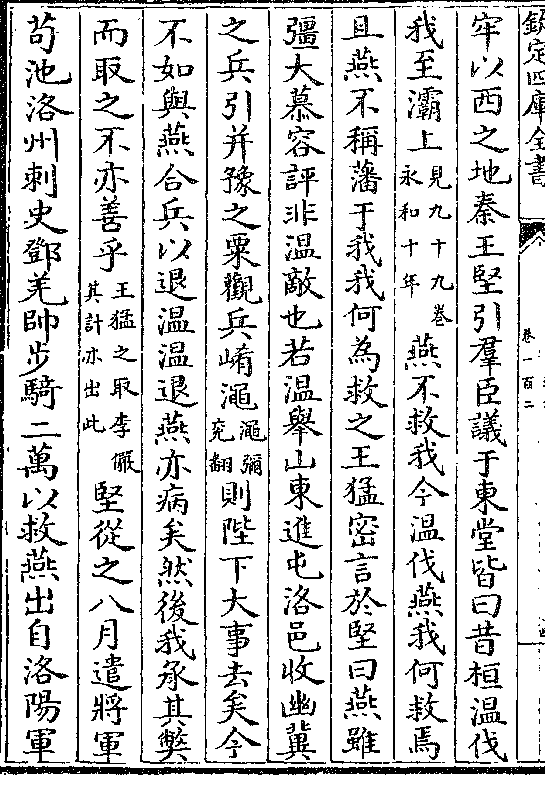 欽定四庫全書
卷一百二
牢以西之地秦王堅引羣臣議于東堂皆曰昔桓溫伐
我至灞上見九十九卷永和十年燕不救我今溫伐燕我何救焉
且燕不稱藩于我我何為救之王猛密言於堅曰燕雖
彊大慕容評非溫敵也若溫舉山東進屯洛邑收幽冀
之兵引并豫之粟觀兵崤澠澠彌兖翻則陛下大事去矣今
不如與燕合兵以退溫溫退燕亦病矣然後我承其弊
而取之不亦善乎王猛之取李儼其計亦出此堅從之八月遣將軍
茍池洛州刺史鄧羌帥步騎二萬以救燕出自洛陽軍